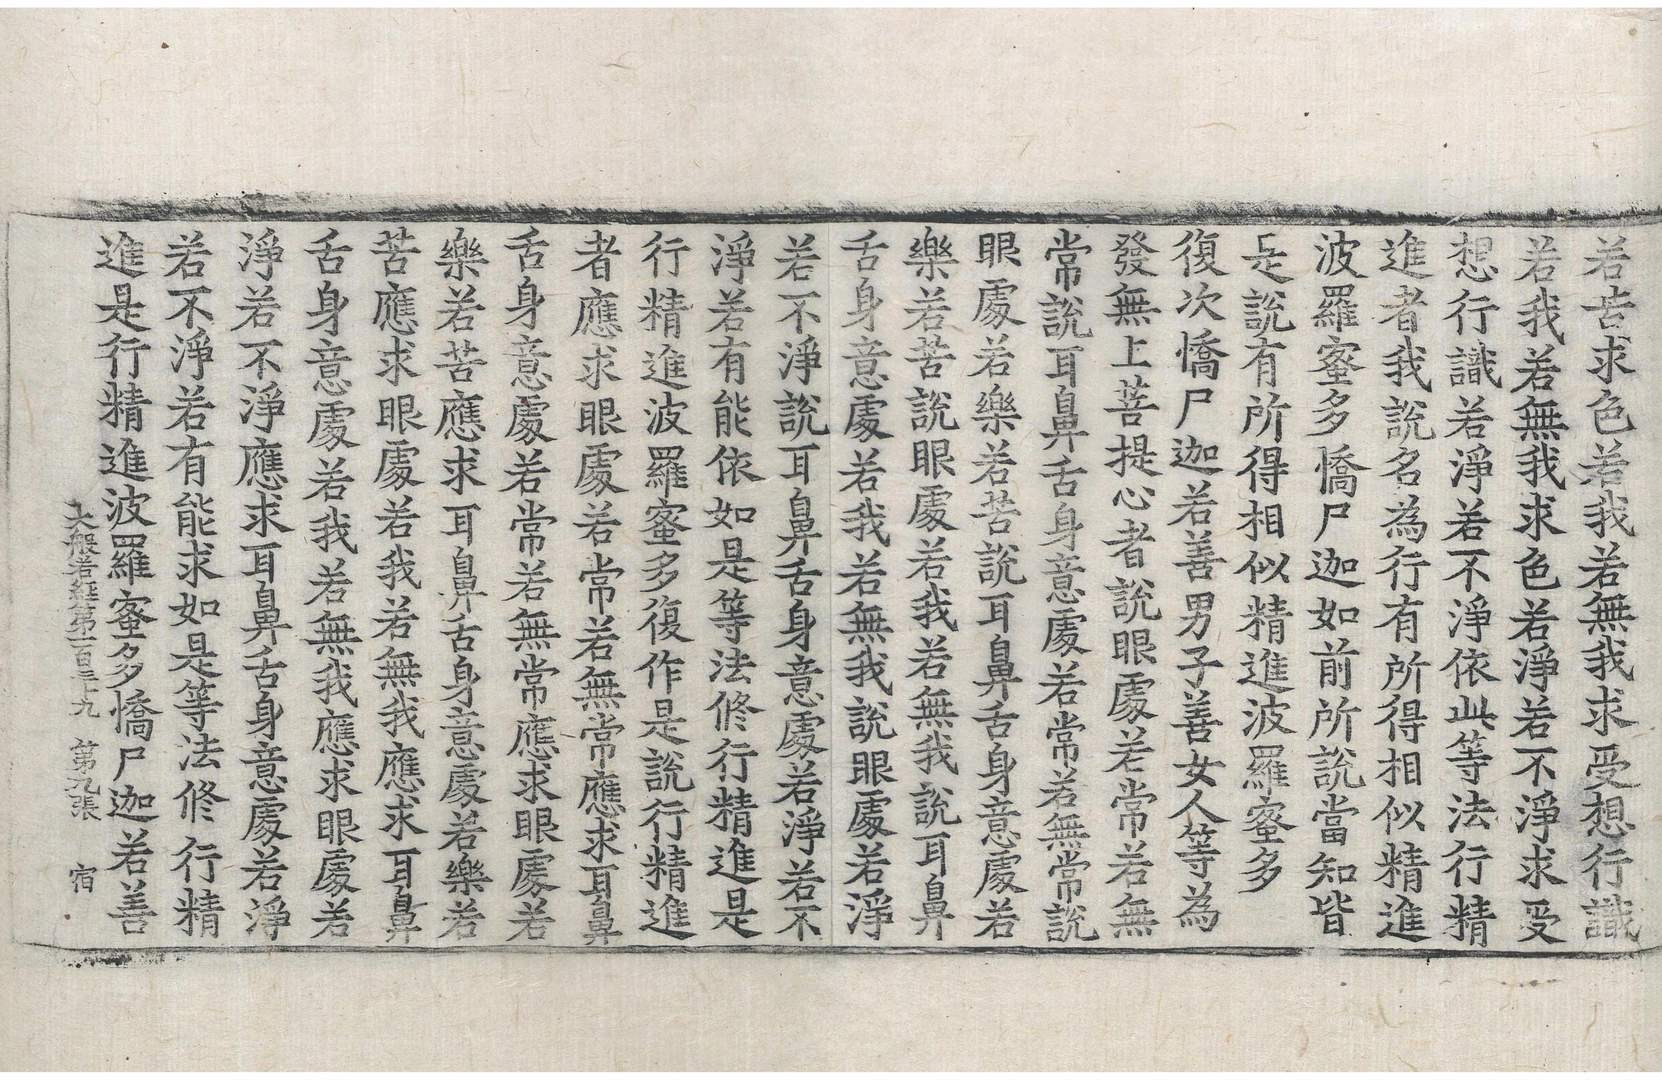 若苦求色若我若無我求受想行識
若我若無我求色若淨若不淨求受
想行識若淨若不淨依此等法行精
進者我說名為行有所得相似精進
波羅蜜多憍尸迦如前所說當知皆
是說有所得相似精進波羅蜜多
復次憍尸迦若善男子善女人等為
發無上菩提心者說眼處若常若無
常說耳鼻舌身意處若常若無常說
眼處若樂若苦說耳鼻舌身意處若
樂若苦說眼處若我若無我說耳鼻
舌身意處若我若無我說眼處若淨
若不淨說耳鼻舌身意處若淨若不
淨若有能依如是等法修行精進是
行精進波羅蜜多復作是說行精進
者應求眼處若常若無常應求耳鼻
舌身意處若常若無常應求眼處若
樂若苦應求耳鼻舌身意處若樂若
苦應求眼處若我若無我應求耳鼻
舌身意處若我若無我應求眼處若
淨若不淨應求耳鼻舌身意處若淨
若不淨若有能求如是等法修行精
進是行精進波羅蜜多憍尸迦若善
大般若經第一百三十九 第九張 宿